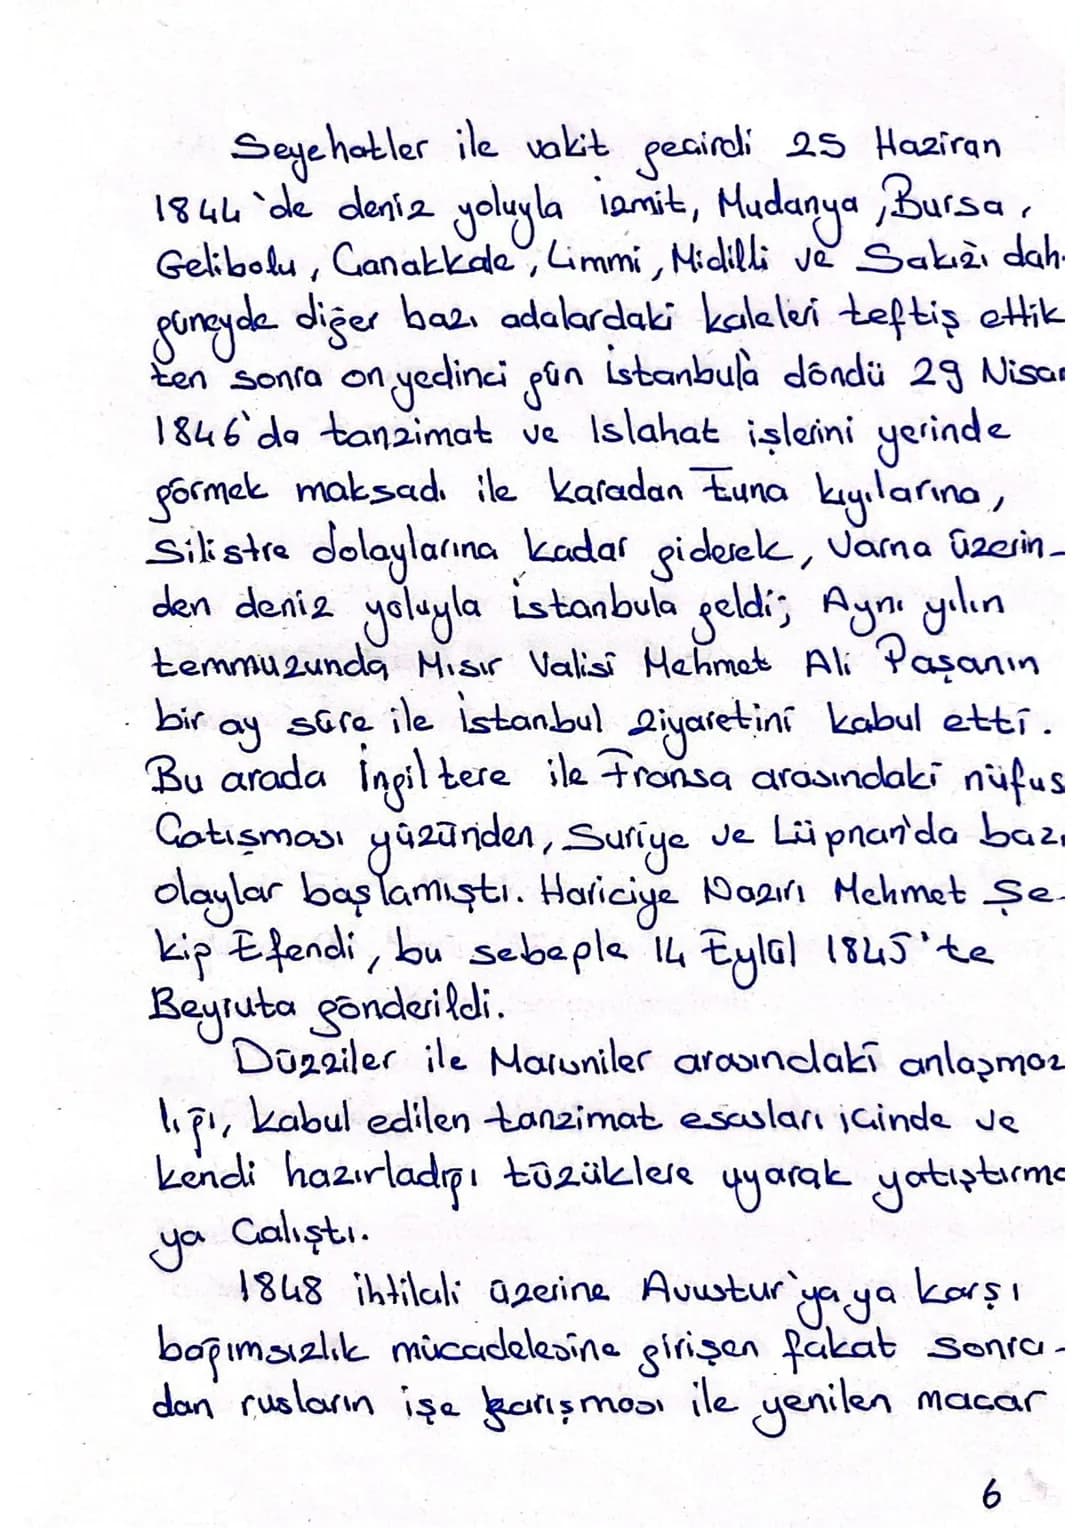 Seyehatler ile vakit geçirdi 25 Haziran
1844'de deniz yoluyla izmit, Mudanya, Bursa,
Gelibolu, Çanakkale, Limmi, Midilli ve Sakızı dah
güneyde diğer bazı adalardaki kaleleri teftiş ettik
ten sonra on yedinci gün istanbula döndü 29 Nisan
1846'da tanzimat ve Islahat işlerini yerinde
görmek maksadı ile karadan Tuna kıyılarına,
Silistre dolaylarına kadar giderek, Varna üzerin-
den deniz yoluyla istanbula geldi; Aynı yılın
temmuzunda Mısır Valisi Mehmet Ali Paşanın
bir ay süre ile istanbul ziyaretini kabul etti.
Bu arada İngiltere ile Fransa arasındaki nüfus
Çatışması yüzünden, Suriye ve Lüpnan'da bazı
olaylar başlamıştı. Hariciye Nazırı Mehmet Şe-
kip Efendi, bu sebeple 14 Eylül 1845'te
Beyruta gönderildi.
Dürziler ile Maruniler arasındaki anlaşmaz
lığı, kabul edilen tanzimat esasları içinde ve
kendi hazırladığı tüzüklere uyarak yatıştırma
ya Çalıştı.
1848 ihtilali üzerine Avustur'yaya karşı
bağımsızlık mücadelesine girişen fakat sonra-
dan rusların işe karışması ile yenilen macar
6